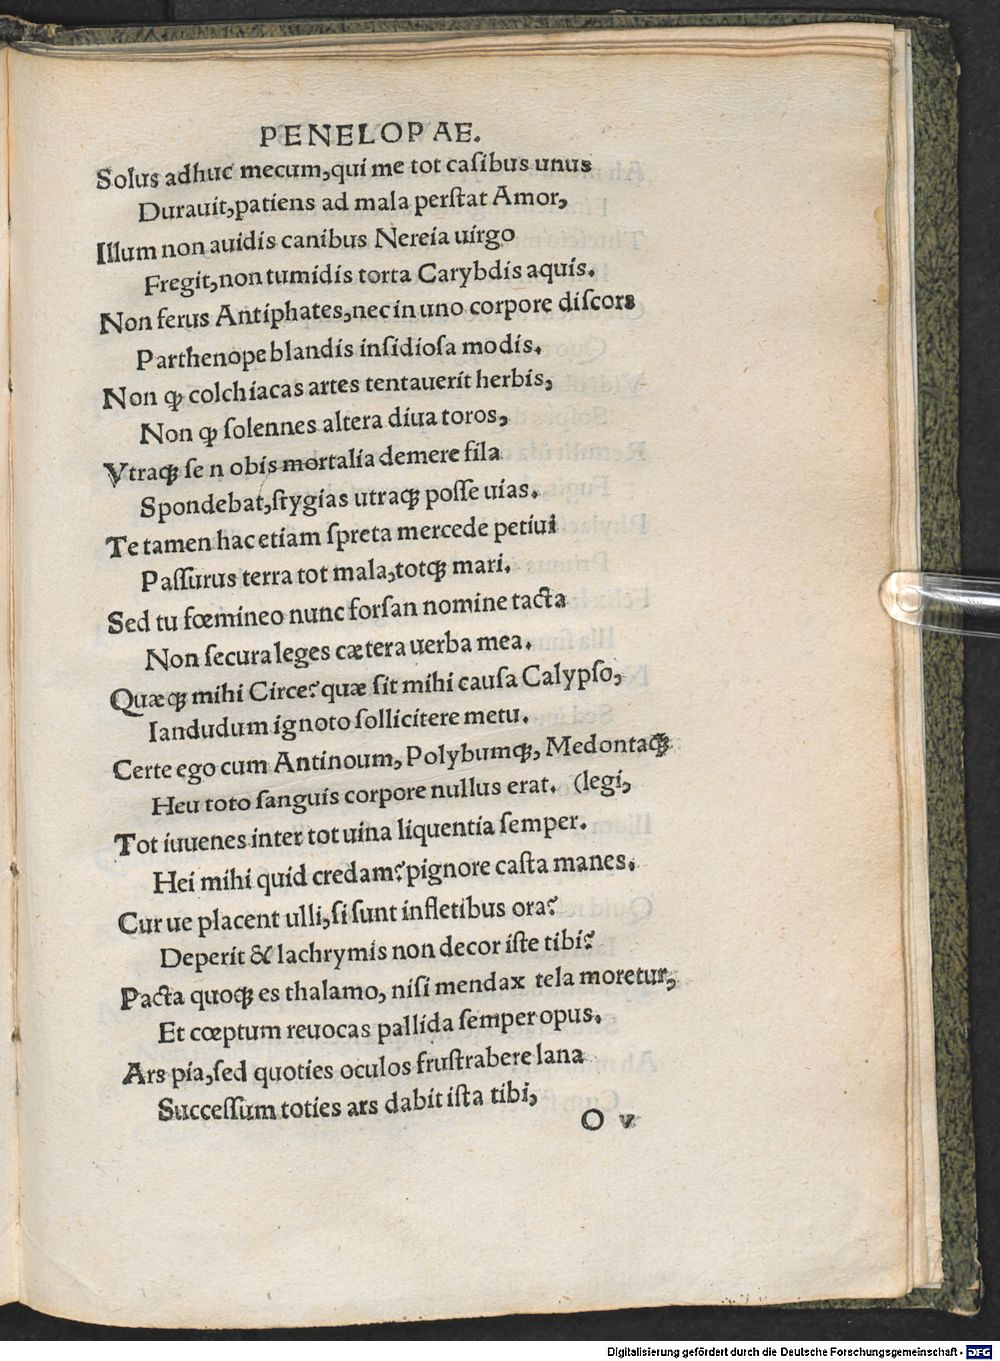 PENELOPAE.
Solus adhuc mecum,qui me tot caſibus unus
Durauit,patiens ad mala perſtat Amor,
Illum non auidis canibus Nereia uirgo
Fregit,non tumidis torta Carybdis aquis.
Non ferus Antiphates,nec in uno corpore diſcors
Parthenope blandis inſidioſa modis.
Non ꝙ colchiacas artes tentauerit herbis,
Non ꝙ ſolennes altera diua toros,
Vtraqꝫ ſe n obis mortalia demere fila
Spondebat,ſtygias utraqꝫ poſſe uias.
Te tamen hac etiam ſpreta mercede petiui
Paſſurus terra tot mala,totqꝫ mari.
Sed tu fœmineo nunc forſan nomine tacta
Non ſecura leges cætera uerba mea.
Quæqꝫ mihi Circe? quæ ſit mihi cauſa Calypſo,
Iandudum ignoto ſollicitere metu.
Certe ego cum Antinoum, Polybumqꝫ, Medontaqꝫ
Heu toto ſanguis corpore nullus erat. (legi,
Tot iuuenes inter tot uina liquentia ſemper.
Hei mihi quid credam? pignore caſta manes.
Cur ue placent ulli,ſi ſunt in fletibus ora?
Deperit & lachrymis non decor iſte tibi?
Pacta quoqꝫ es thalamo, niſi mendax tela moretur,
Et cœptum reuocas pallida ſemper opus.
Ars pia,ſed quoties oculos fruſtrabere lana
Succeſſum toties ars dabit iſta tibi,
O v
Digitalisierung gefördert durch die Deutsche Forschungsgemeinschaft - DFG